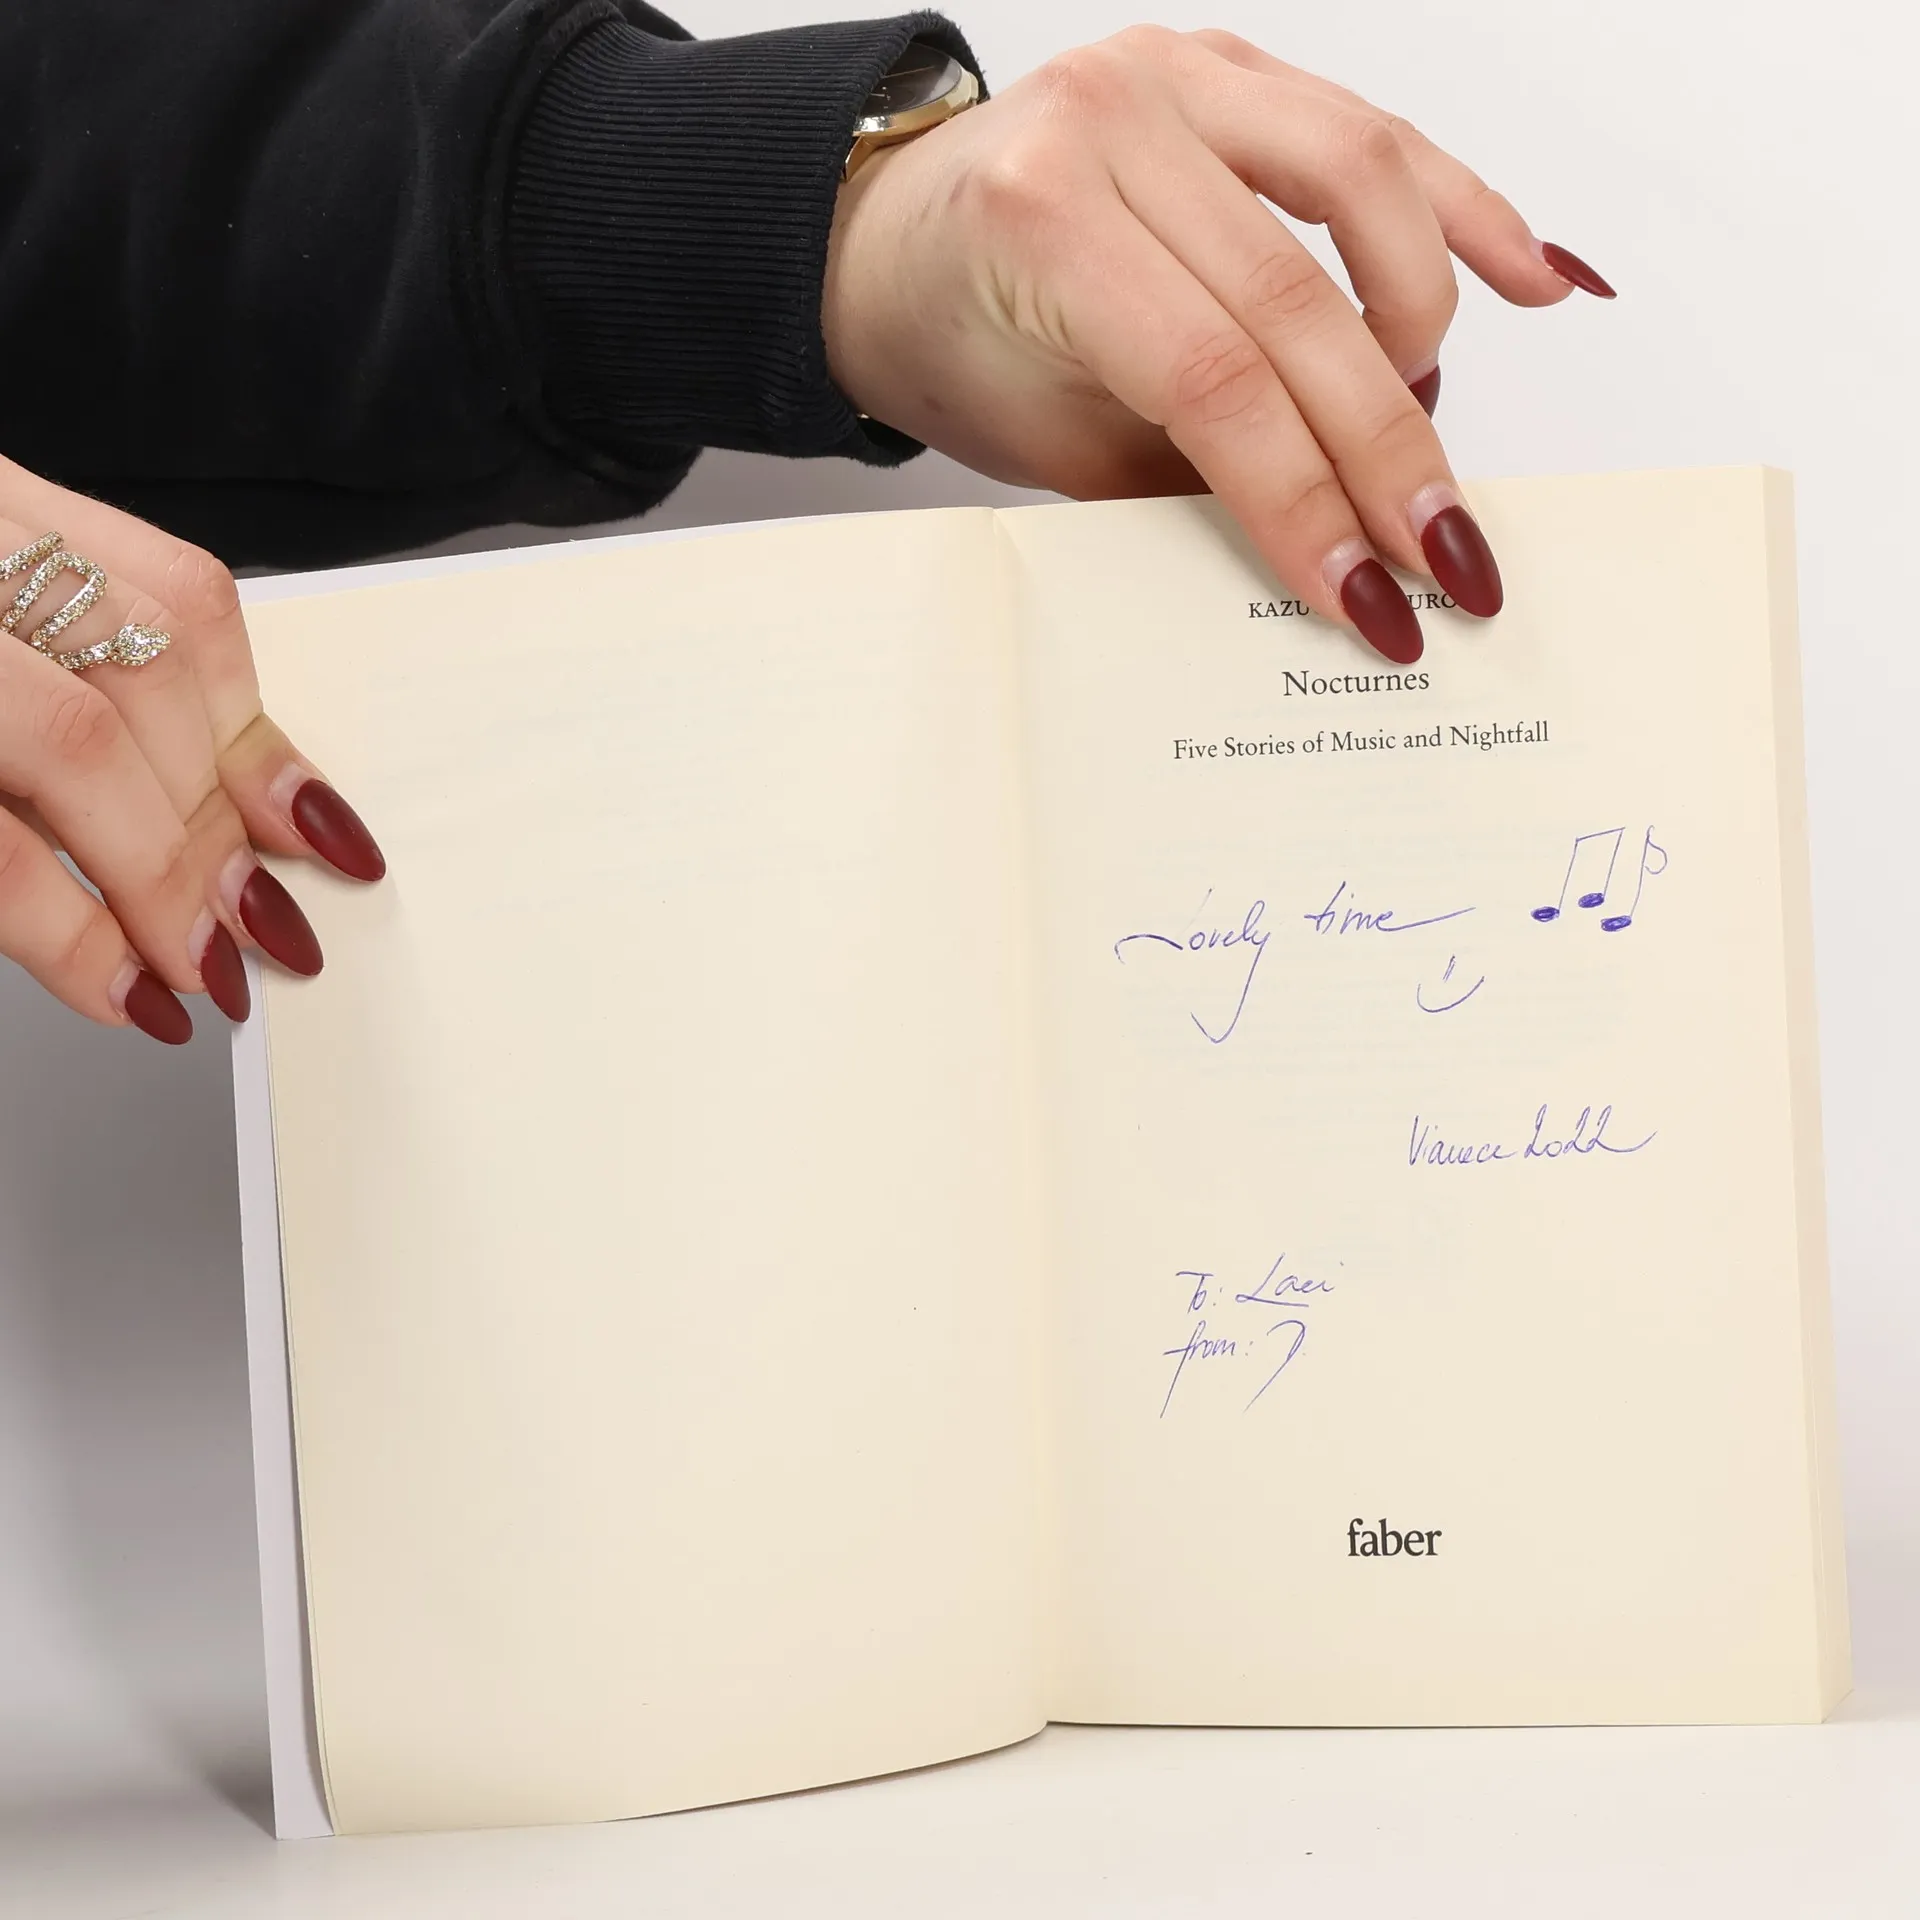 KAZU URO
Nocturnes
Five Stories of Music and Nightfall
Lovely time
2022
To: Laci
from: D.
faber